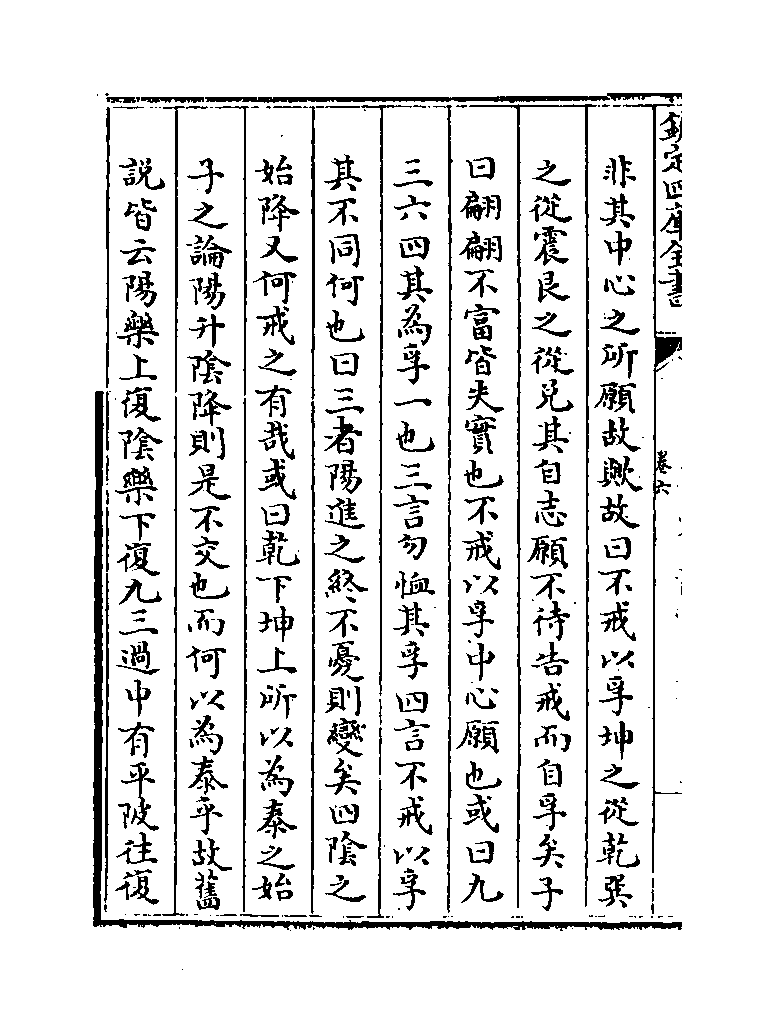 欽定四庫全書
卷六
非其中心之所願故歟故曰不戒以孚坤之從乾巽
之從震艮之從兌其自志願不待告戒而自孚矣子
曰翩翩不富皆失實也不戒以孚中心願也或曰九
三六四其為孚一也三言勿恤其孚四言不戒以孚
其不同何也曰三者陽進之終不憂則變矣四陰之
始降又何戒之有哉或曰乾下坤上所以為泰之始
子之論陽升陰降則是不交也而何以為泰乎故舊
説皆云陽樂上復陰樂下復九三過中有平陂往復